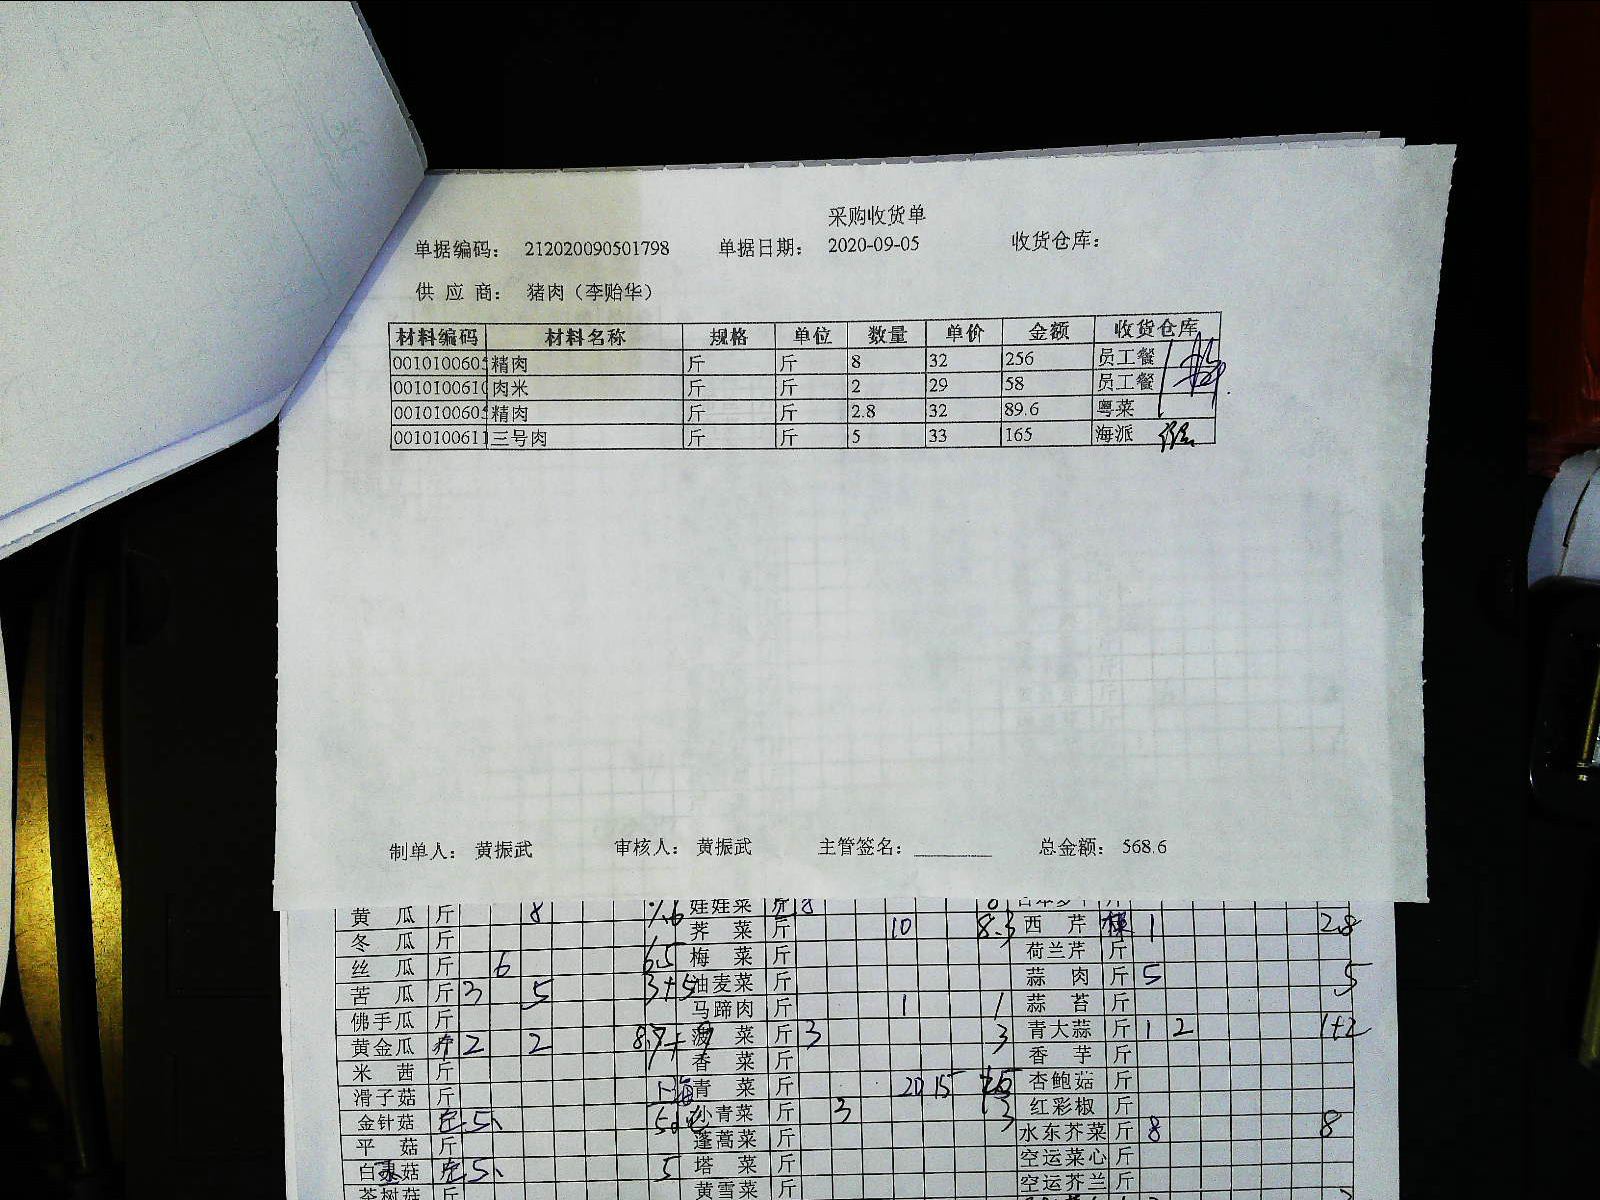 采购收货单
单据编码： 212020090501798 单据日期： 2020-09-05 收货仓库：
供 应 商： 猪肉（李贻华）
材料编码 材料名称 规格 单位 数量 单价 金额 收货仓库
001010060 精肉 斤 斤 8 32 256 员工餐
001010061 肉米 斤 斤 2 29 58 员工餐
001010060 精肉 斤 斤 2.8 32 89.6 粤菜
0010100611 三号肉 斤 斤 5 33 165 海派
制单人： 黄振武 审核人： 黄振武 主管签名： 总金额： 568.6
黄 瓜 斤 8 娃娃菜 斤 8
冬 瓜 斤 荠 菜 斤 10 8.3 西 芹 1 2.8
丝 瓜 斤 6 6.5 梅 菜 斤 荷兰芹 斤
苦 瓜 斤 3 5 3+5 油麦菜 斤 蒜 肉 斤 5 5
佛手瓜 斤 马蹄肉 斤 1 1 蒜 苔 斤
黄金瓜 2 2 菠 菜 斤 3 3 青大蒜 斤 1 2 1+2
米 茜 斤 香 菜 斤 香 芋 斤
滑子菇 斤 上海青 菜 斤 20 15 杏鲍菇 斤
金针菇 5 小青菜 斤 3 3 红彩椒 斤
平 菇 斤 蓬蒿菜 斤 水东芥菜 斤 8 8
白 菇 5 5 塔 菜 斤 空运菜心 斤
茶树菇 斤 黄雪菜 斤 空运芥兰 斤